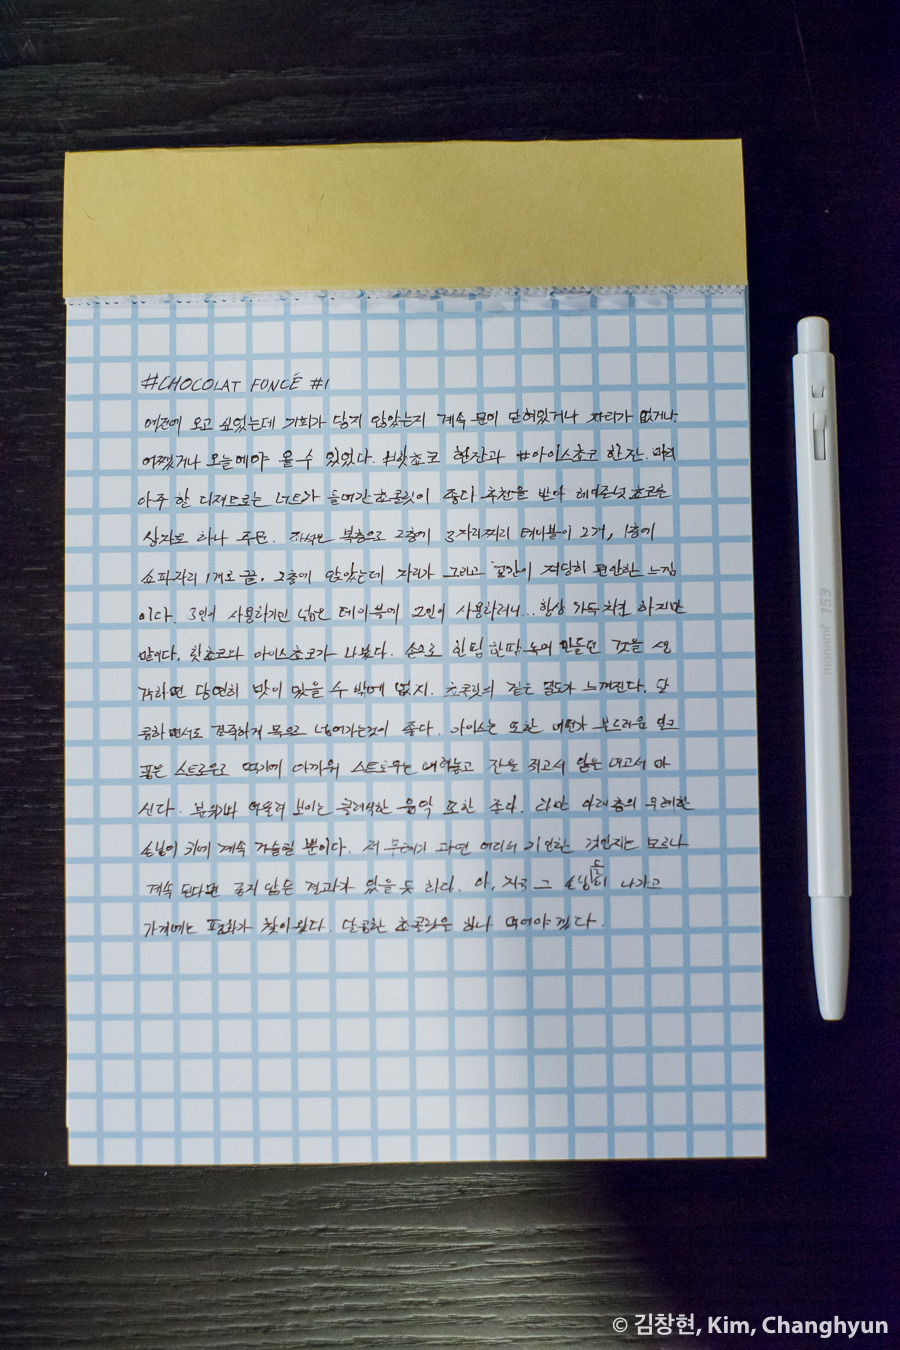 #CHOCOLAT FONCÉ #1
예전에 오고 싶었는데 기회가 닿지 않았는지 계속 문이 닫혀있거나 자리가 없거나.
어쨌거나 오늘에야 올 수 있었다. #핫초코 한잔과 #아이스초코 한잔.
아주 한 디저트로는 너트가 들어간 초콜릿이 좋다 추천을 받아 헤이즐넛 초코
하나 주문. 좌석은 복층으로 2층에 3자리짜리 테이블이 2개, 1층에
소파자리 1개로 끝. 2층에 앉았는데 자리가 그리고 공간이 적당히 편안한 느낌
이다. 3인이 사용하기엔 좁은 테이블에 2인이 사용하려니... 항상 하지만
말이다. 핫초코와 아이스초코가 나왔다. 손으로 한땀한땀 녹여 만들던 것을 생
각하면 당연히 맛이 있을 수 밖에 없지. 초콜릿의 깊은 밀도가 느껴진다. 달
콤하면서도 걸쭉하게 목으로 넘어가는것이 좋다. 아이스는 또한 부드러운 밀크
폼은 스트로우로 먹기에 아까워 스트로우는 내려놓고 잔을 들고서 입을 대고서 마
신다. 분위기와 어울려 보이는 클래식한 음악 또한 좋다. 다만 아래층의 무례한
손님이 귀에 계속 거슬릴 뿐이다. 저 무례가 과연 어디서 기인한 것인지는 모르나
계속 된다면 좋지 않은 결과가 있을 듯 하다. 아, 지금 그 손님들이 나가고
가게에는 평화가 찾아왔다. 달콤한 초콜릿을 하나 먹어야겠다.
monami 153
© 김창현, Kim, Changhyun